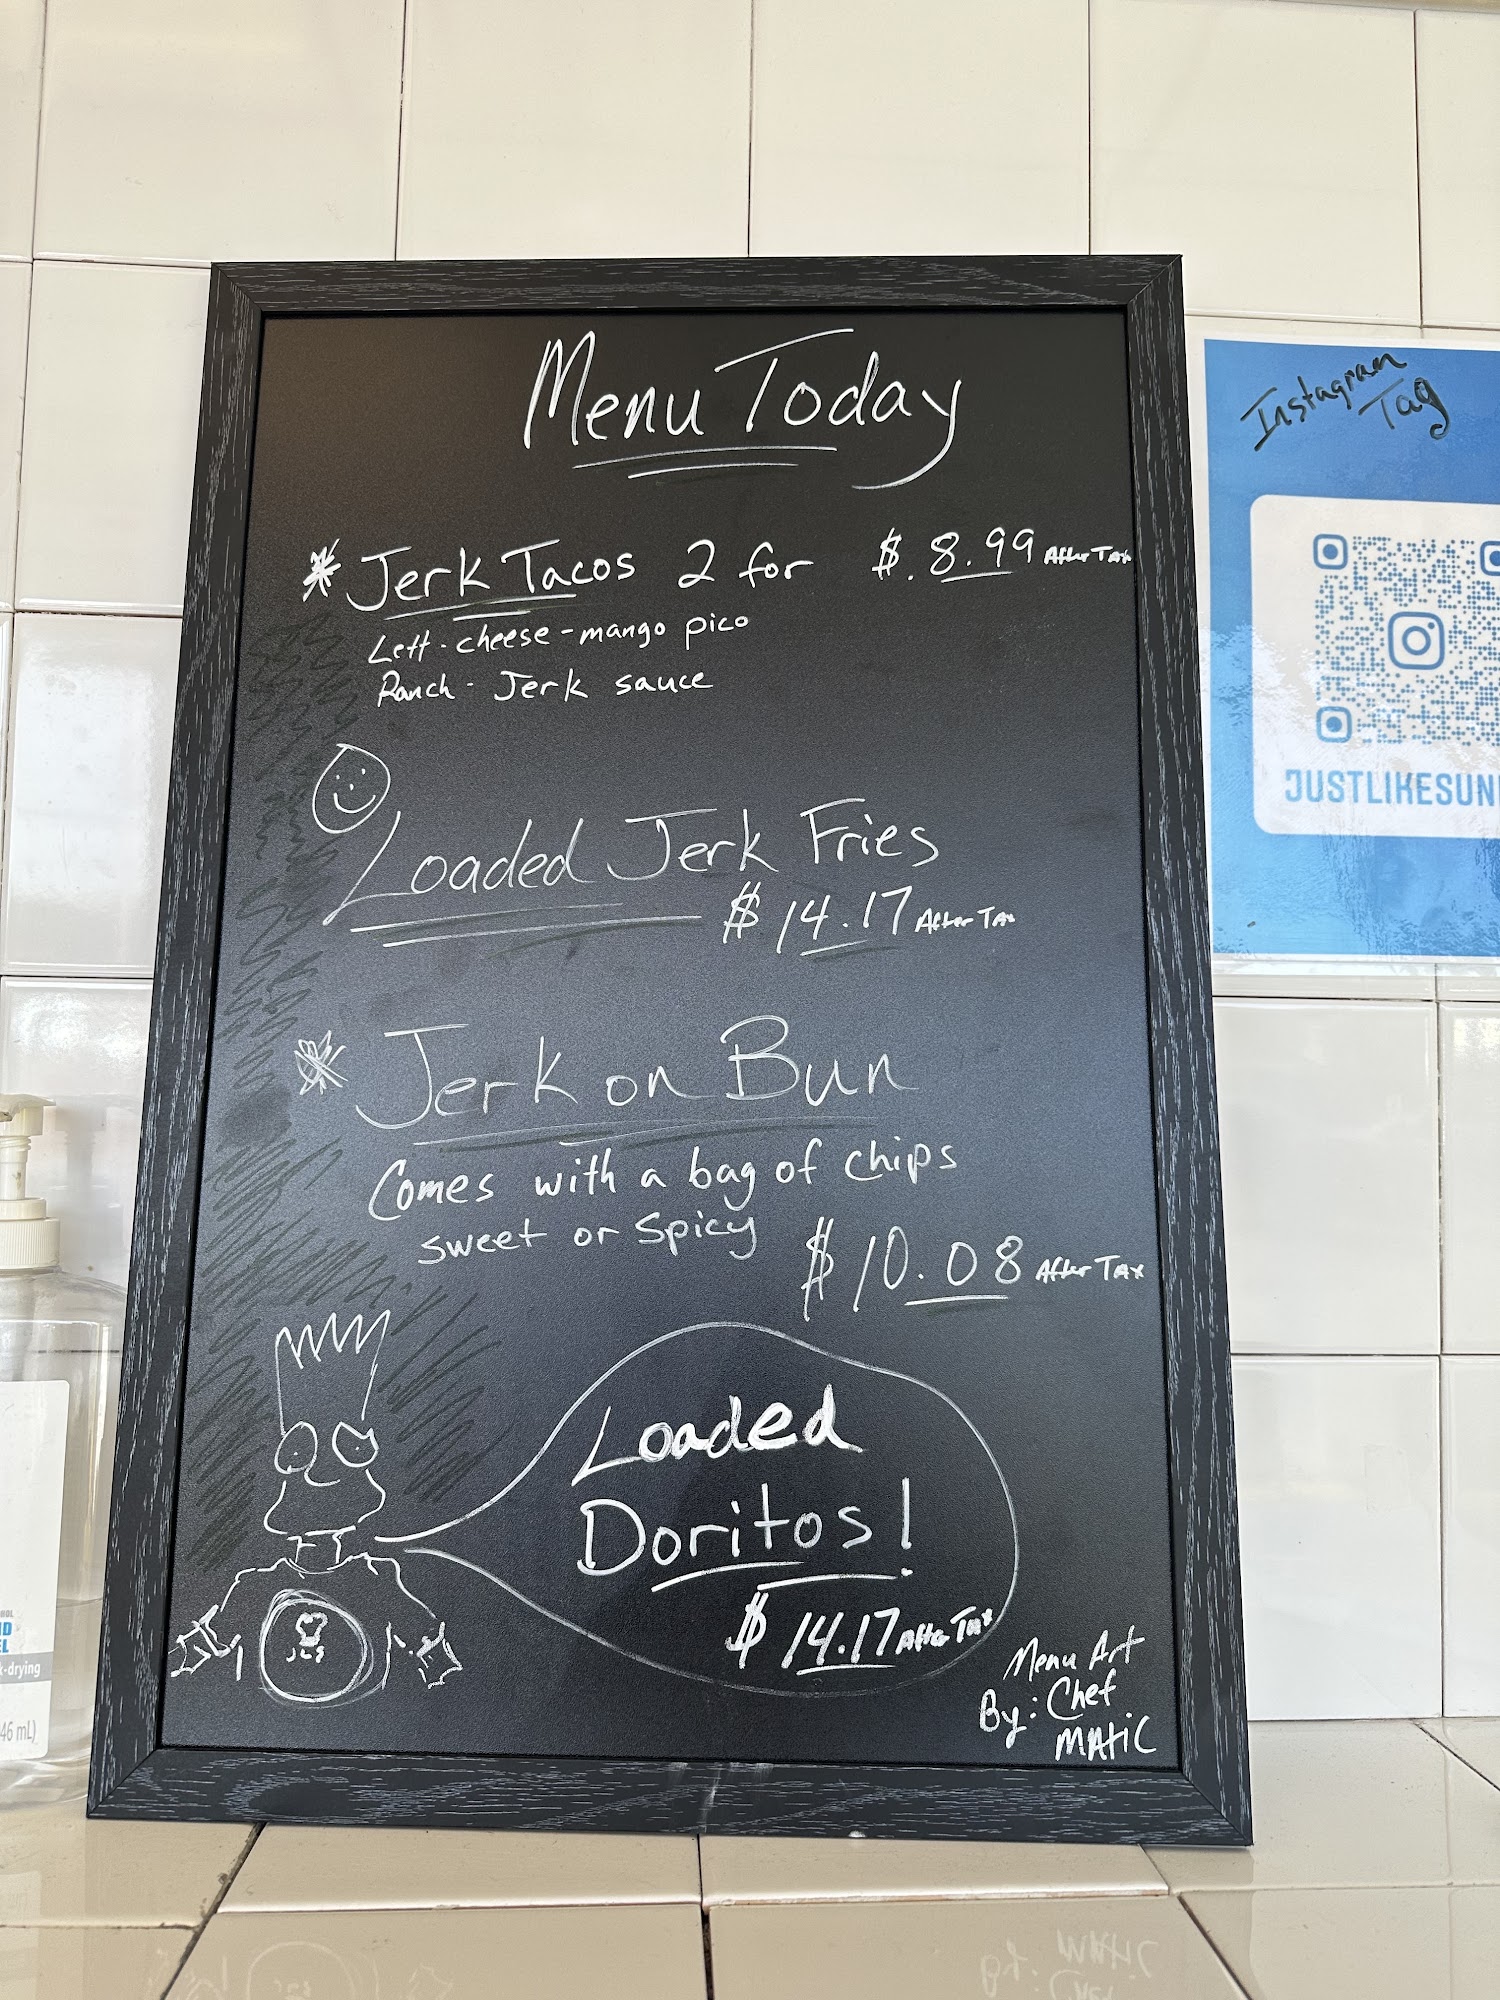 Menu Today
Jerk Tacos 2 for $.8.99 After Tax
Lett-cheese-mango pico
Ranch-Jerk sauce
Loaded Jerk Fries
$14.17 After Tax
Jerk on Bun
Comes with a bag of chips
sweet or spicy
$10.08 After Tax
Loaded
Doritos!
$14.17 After Tax
JLS
Menu Art
By: Chef
MATiC
Instagram
Tag
JUSTLIKESUN
k-drying
46 mL)